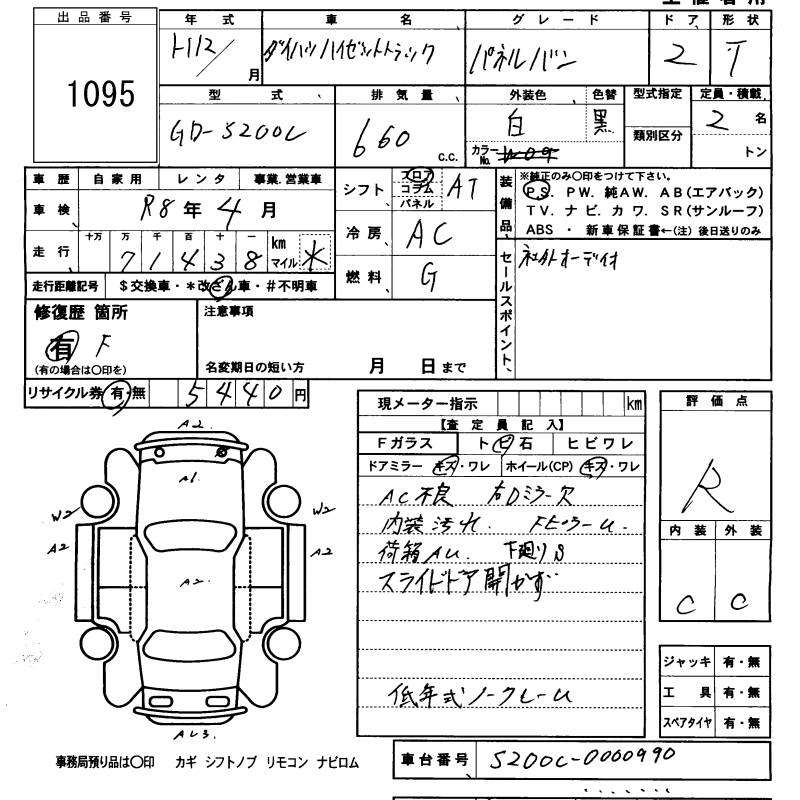 出品番号
1095
年式 車名 グレード ドア 形状
H12/月 ダイハツハイゼットトラック パネルバン 2 T
型式 排気量 外装色 色替 型式指定 定員・積載
GD-S200C 660 c.c. 白 黒 類別区分 2名
カラーNo. W09 トン
車歴 自家用 レンタ 事業.営業車
車検 R8年4月
走行 十万 万 千 百 十 一 km マイル
71438 *
走行距離記号 $交換車・*改ざん車・#不明車
シフト フロア コラム パネル AT
冷房 AC
燃料 G
装備品
※純正のみ○印をつけて下さい。
PS. PW. 純AW. AB(エアバック)
TV. ナビ. カワ. SR(サンルーフ)
ABS ・ 新車保証書←(注) 後日送りのみ
セールスポイント
社外オーディオ
修復歴 箇所
有 F
(有の場合は○印を)
注意事項
名変期日の短い方 月 日まで
リサイクル券 有・無 5440円
現メーター指示 km
【査定員記入】
Fガラス ト ビ 石 ヒビワレ
ドアミラー キズ・ワレ ホイール(CP) キズ・ワレ
AC不良 右Dミラー欠
内装汚れ. FピラーU.
荷箱AU. 下廻りS
スライドドア開かず
低年式ノークレーム
評価点
R
内装 外装
C C
ジャッキ 有・無
工具 有・無
スペアタイヤ 有・無
A2.
A1.
W2 W2
A2 A2
A2.
AU3.
事務局預り品は○印 カギ シフトノブ リモコン ナビロム
車台番号 S200C-0000990